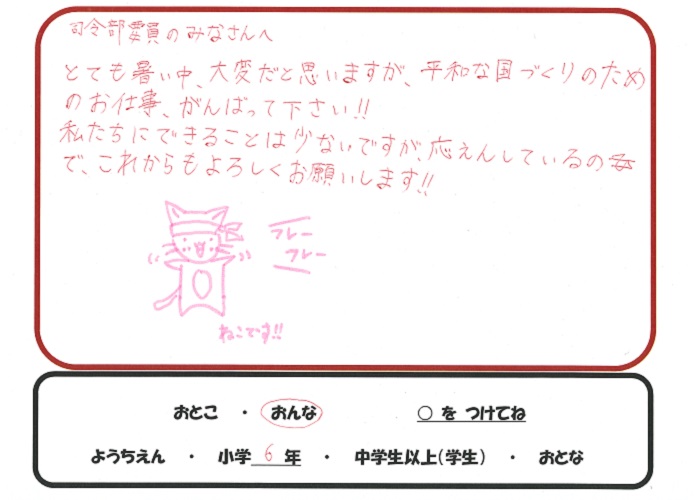 司令部要員のみなさんへ
とても暑い中、大変だと思いますが、平和な国づくりのため
のお仕事、がんばって下さい!!
私たちにできることは少ないですが、応えんしているの
で、これからもよろしくお願いします!!
フレー
フレー
ねこです!!
おとこ ・ おんな ○ を つけてね
ようちえん ・ 小学 6 年 ・ 中学生以上(学生) ・ おとな